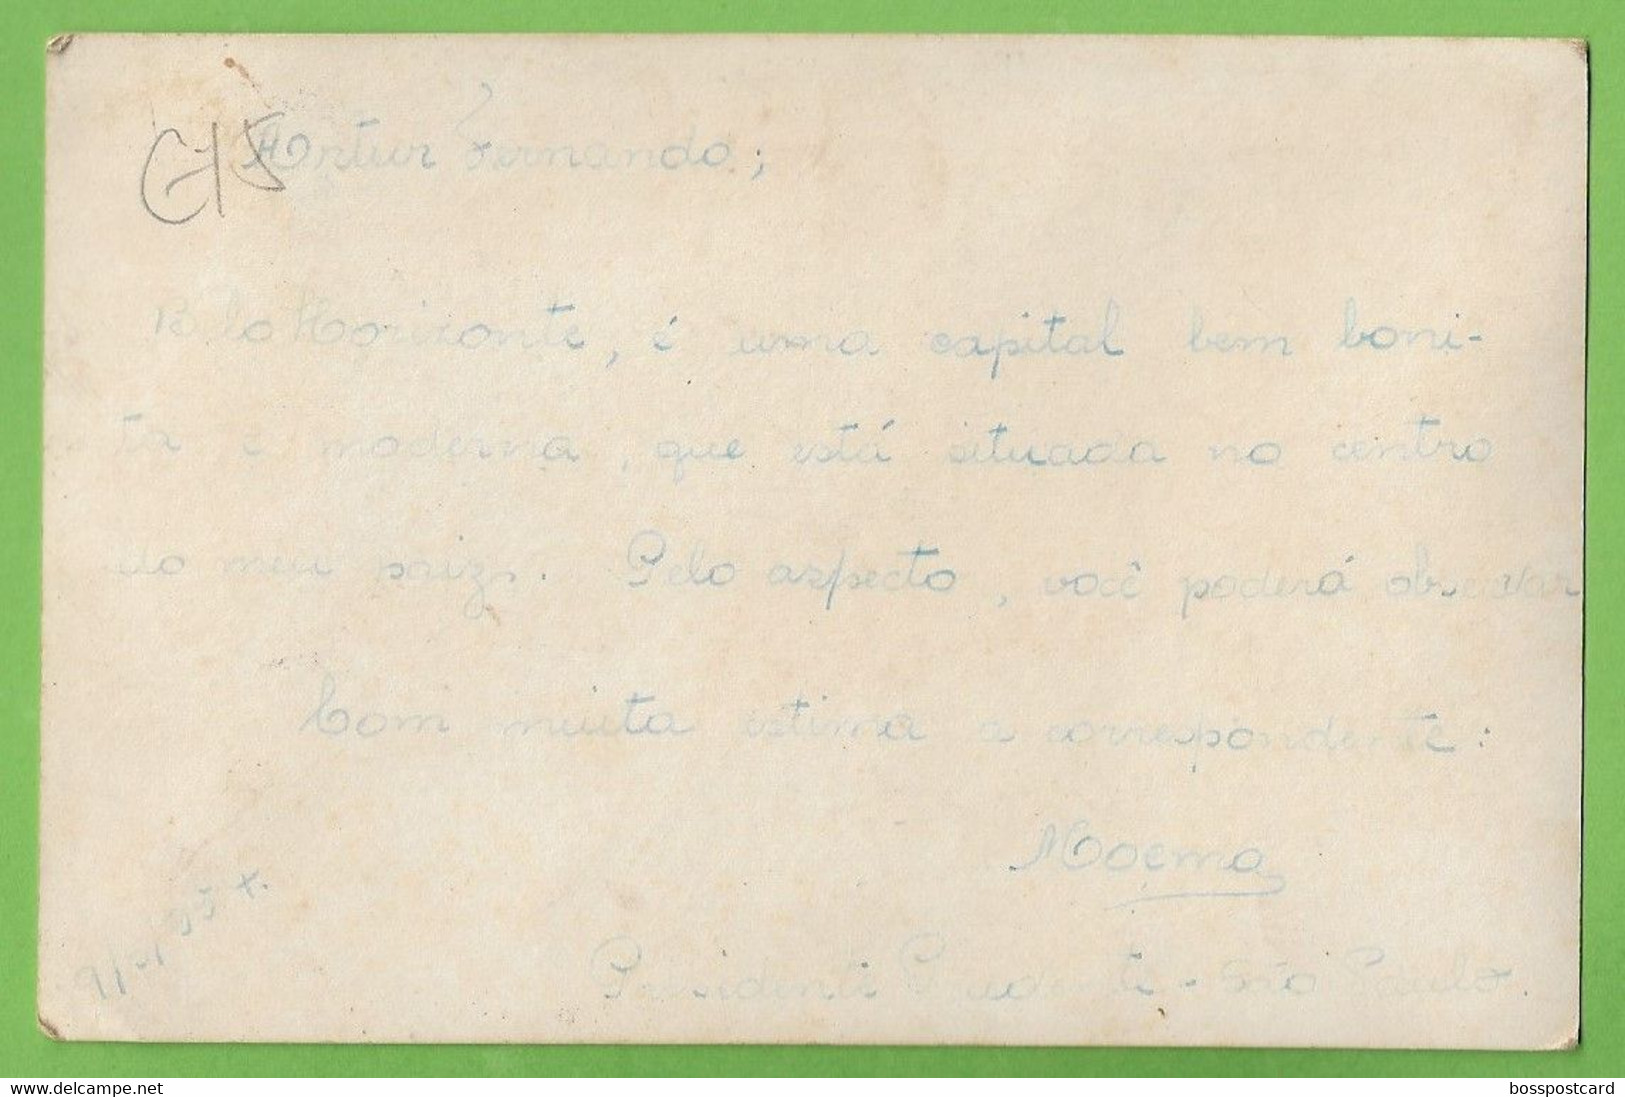 Artur Fernando;
Belo Horizonte, é uma capital bem boni-
ta e moderna, que está situada no centro
do meu paiz. Pelo aspecto, você poderá observar
Com muita estima a correspondente:
Moema
Presidente Prudente - São Paulo.
https://www.delcampe.net
bosspostcard